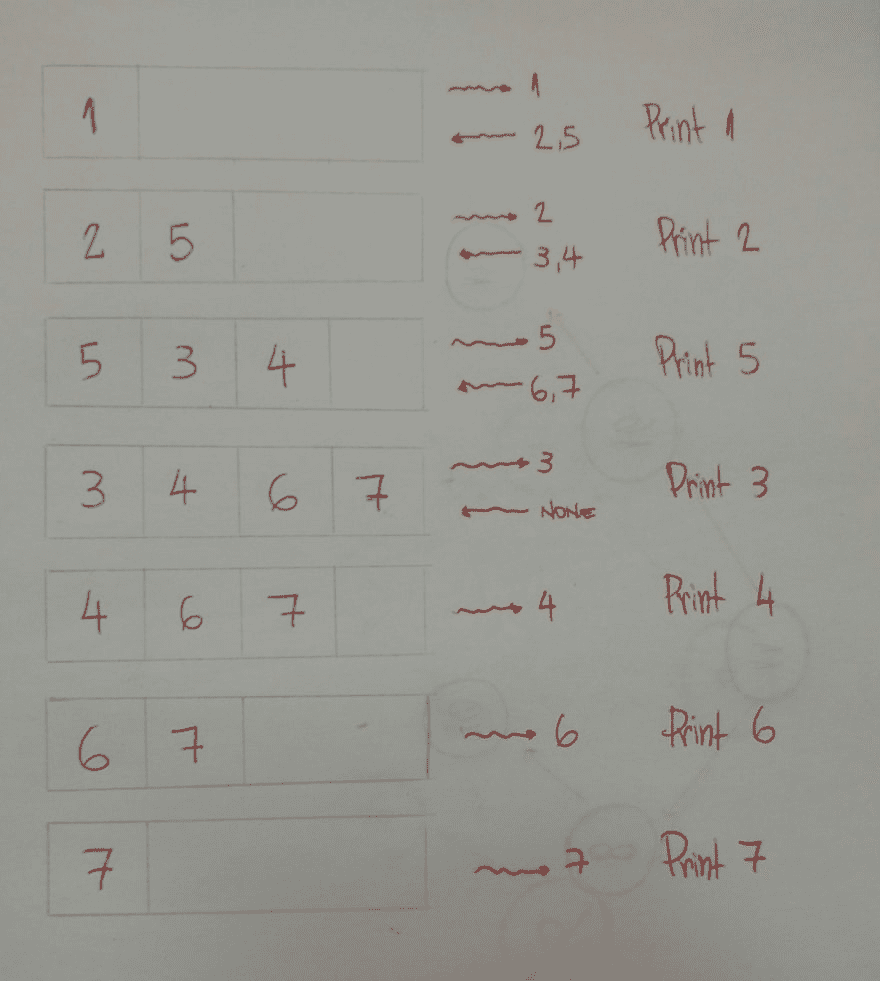 1
1
2,5
Print 1
2 5
2
3,4
Print 2
5 3 4
5
6,7
Print 5
3 4 6 7
3
NONE
Print 3
4 6 7
4
Print 4
6 7
6
Print 6
7
7
Print 7